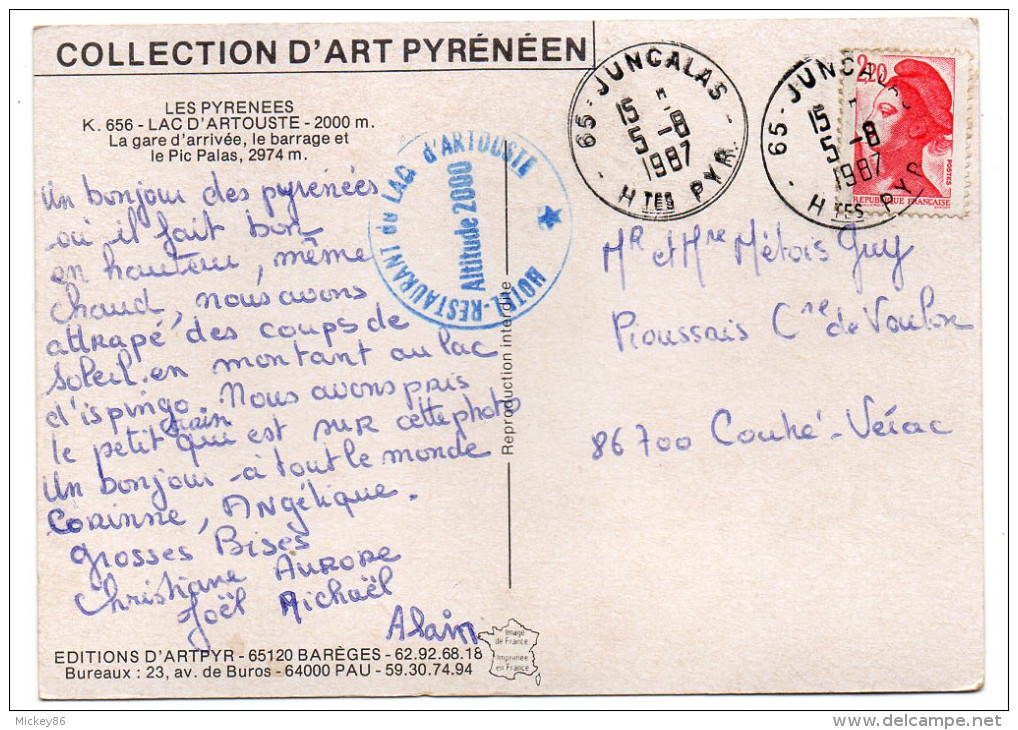 COLLECTION D'ART PYRÉNÉEN
LES PYRENEES
K. 656 - LAC D'ARTOUSTE - 2000 m.
La gare d'arrivée, le barrage et
le Pic Palas, 2974 m.
Un bonjour des pyrenées
où il fait bon
en hauteur, même
chaud, nous avons
attrapé des coups de
soleil. en montant au lac
d'ispingo. Nous avons pris
le petit train qui est sur cette photo
Un bonjour à tout le monde
Corinne, Angélique.
grosses Bises
Christiane Aurore
Joël Michaël
Alain
HOTEL-RESTAURANT du LAC d'ARTOUSTE
Altitude 2000
65 - JUNCALAS
15 H
5 -8
1987
HTES PYR.
65 - JUNCALAS
15 H
5 -8
1987
HTES PYR.
2,20
POSTES
REPUBLIQUE FRANÇAISE
Mr et Mme Métois Guy
Pioussais Cne de Voulon
86700 Couhé-Vérac
Reproduction interdite
EDITIONS D'ARTPYR - 65120 BARÈGES - 62.92.68.18
Bureaux : 23, av. de Buros - 64000 PAU - 59.30.74.94
Image
de France
Imprimée
en France
Mickey86
www.delcampe.net